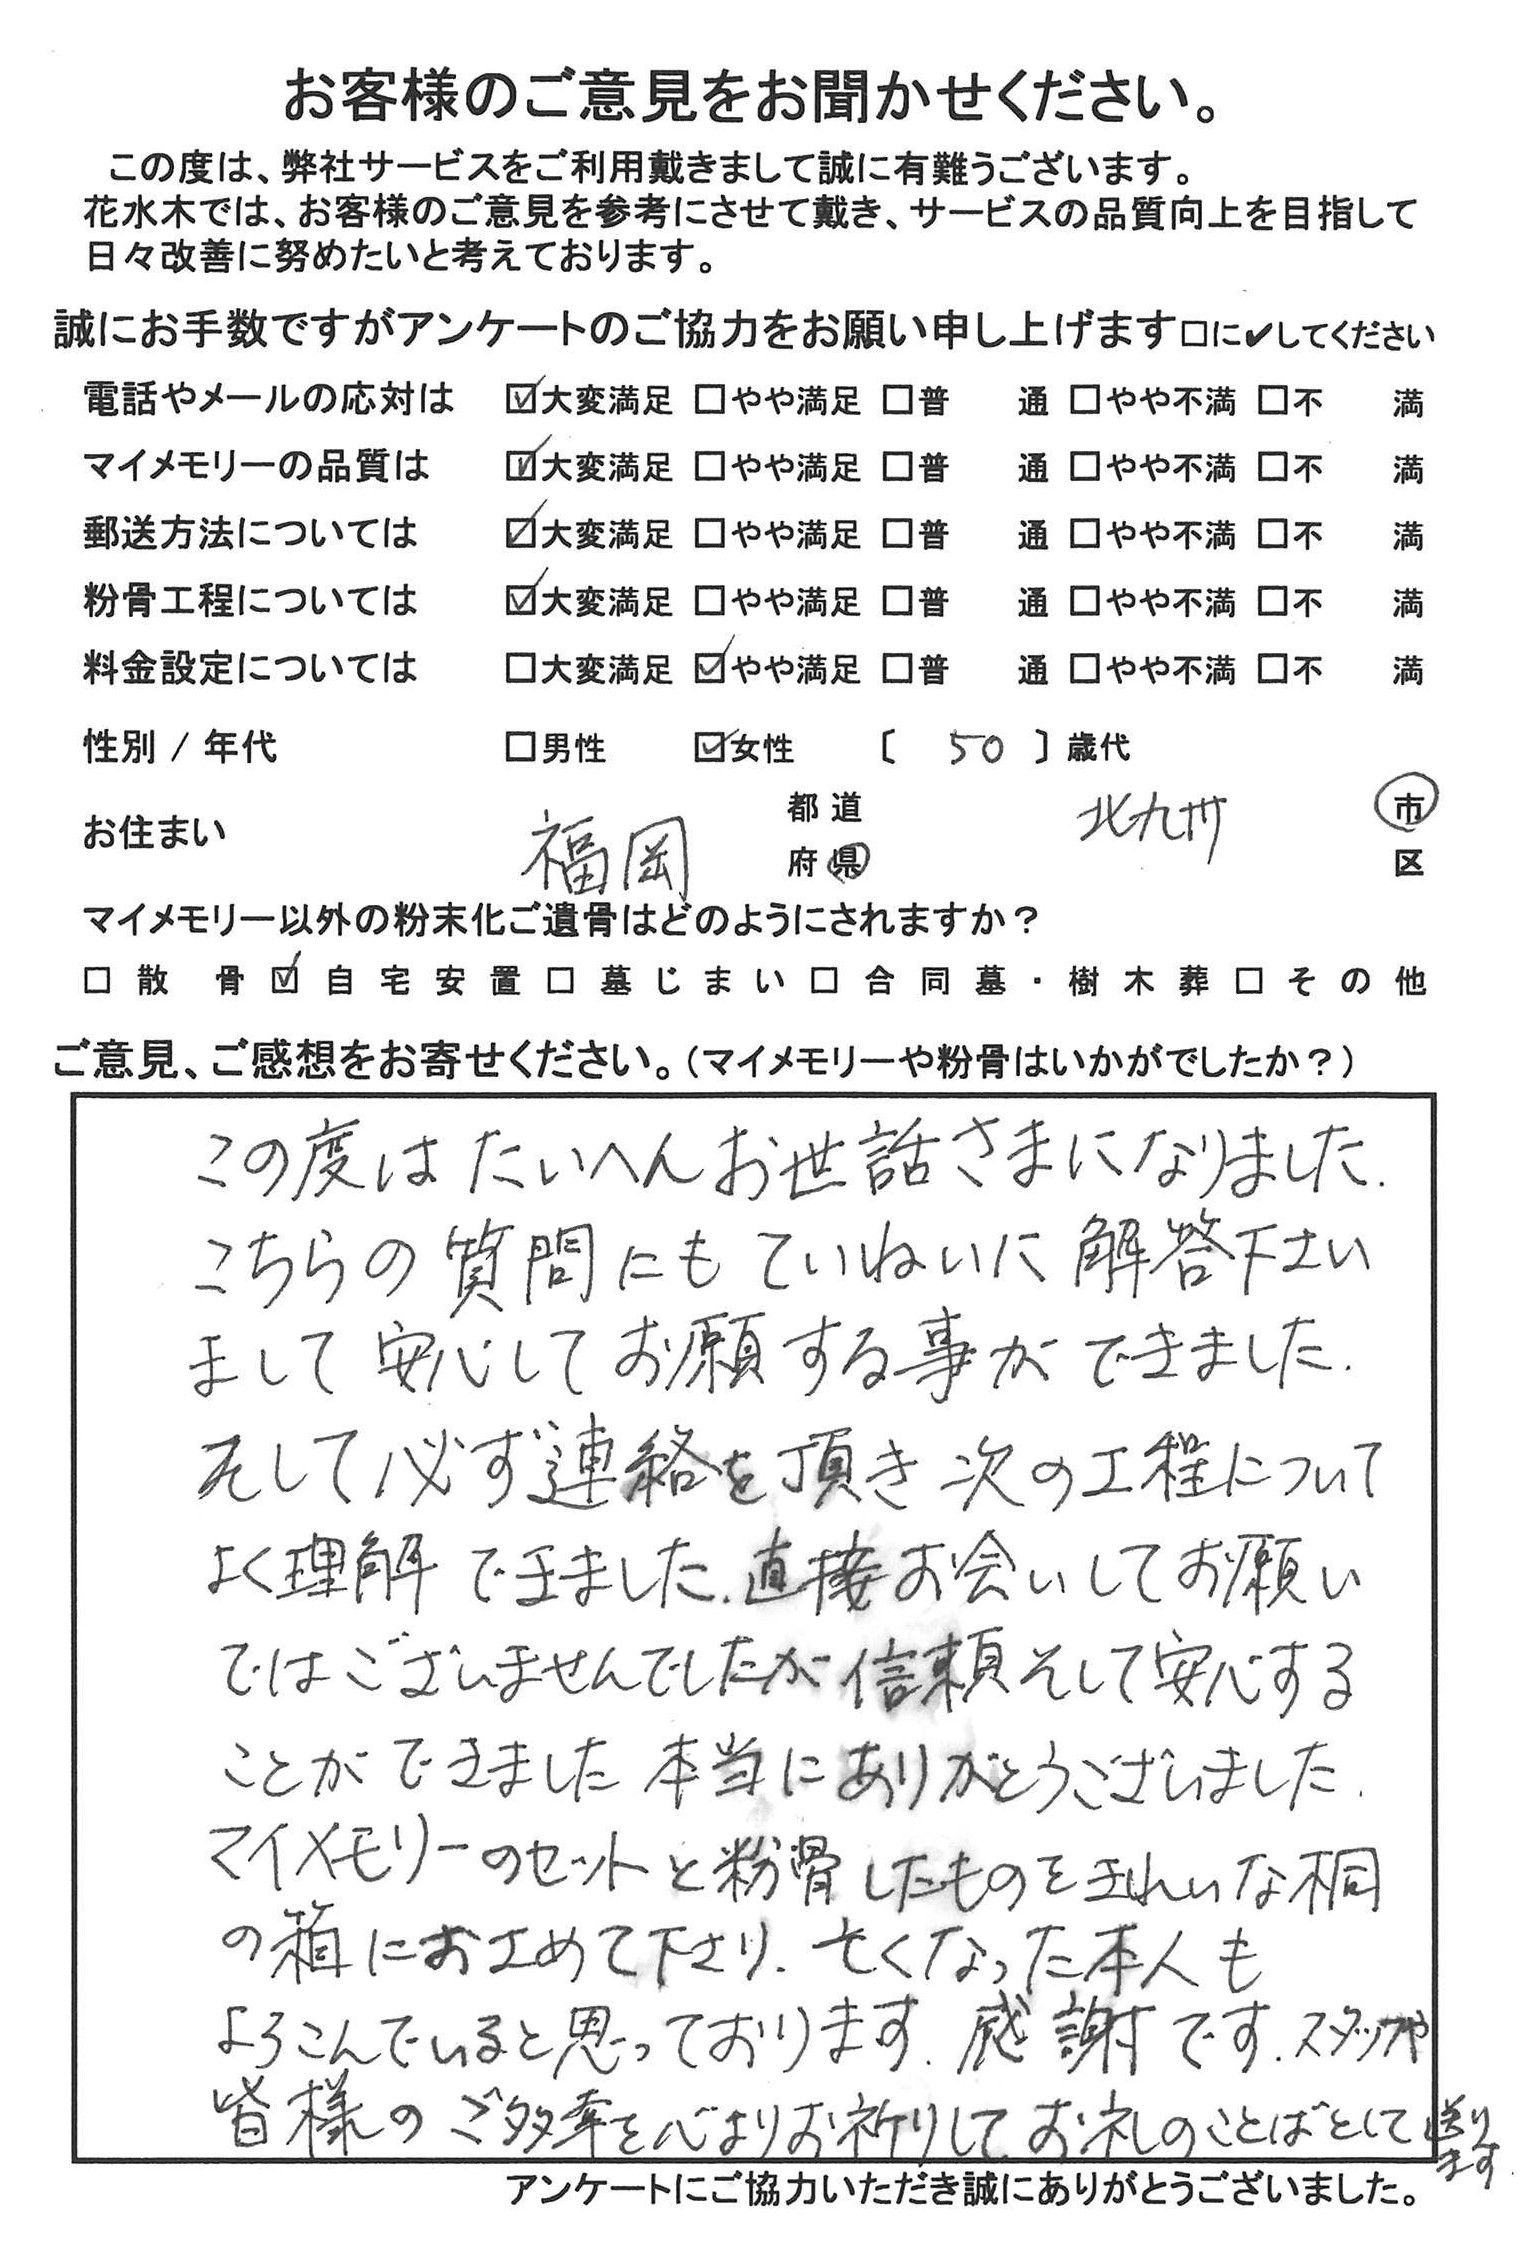 お客様のご意見をお聞かせください。
この度は、弊社サービスをご利用戴きまして誠に有難うございます。
花水木では、お客様のご意見を参考にさせて戴き、サービスの品質向上を目指して
日々改善に努めたいと考えております。
誠にお手数ですがアンケートのご協力をお願い申し上げます□に✔してください
電話やメールの応対は ☑大変満足 □やや満足 □普 通 □やや不満 □不 満
マイメモリーの品質は ☑大変満足 □やや満足 □普 通 □やや不満 □不 満
郵送方法については ☑大変満足 □やや満足 □普 通 □やや不満 □不 満
粉骨工程については ☑大変満足 □やや満足 □普 通 □やや不満 □不 満
料金設定については □大変満足 ☑やや満足 □普 通 □やや不満 □不 満
性別 / 年代 □男性 ☑女性 〔 50 〕歳代
お住まい 福岡 都道府県 北九州 市区
マイメモリー以外の粉末化ご遺骨はどのようにされますか？
□散 骨 ☑自宅安置 □墓じまい □合同墓・樹木葬 □その他
ご意見、ご感想をお寄せください。（マイメモリーや粉骨はいかがでしたか？）
この度は たいへんお世話さまになりました.
こちらの質問にも ていねいに 解答下さい
まして 安心して お願する事が できました.
そして必ず連絡を頂き 次の工程について
よく理解 できました. 直接お会いしてお願い
ではございませんでしたが 信頼そして安心する
ことが できました 本当に ありがとうございました.
マイメモリーのセットと粉骨したものをきれいな桐
の箱に おさめて下さり. 亡くなった本人も
よろこんでいると思っております. 感謝です. スタッフや
皆様の ご多幸を心よりお祈りして お礼のことばとして送り
ます
アンケートにご協力いただき誠にありがとうございました。